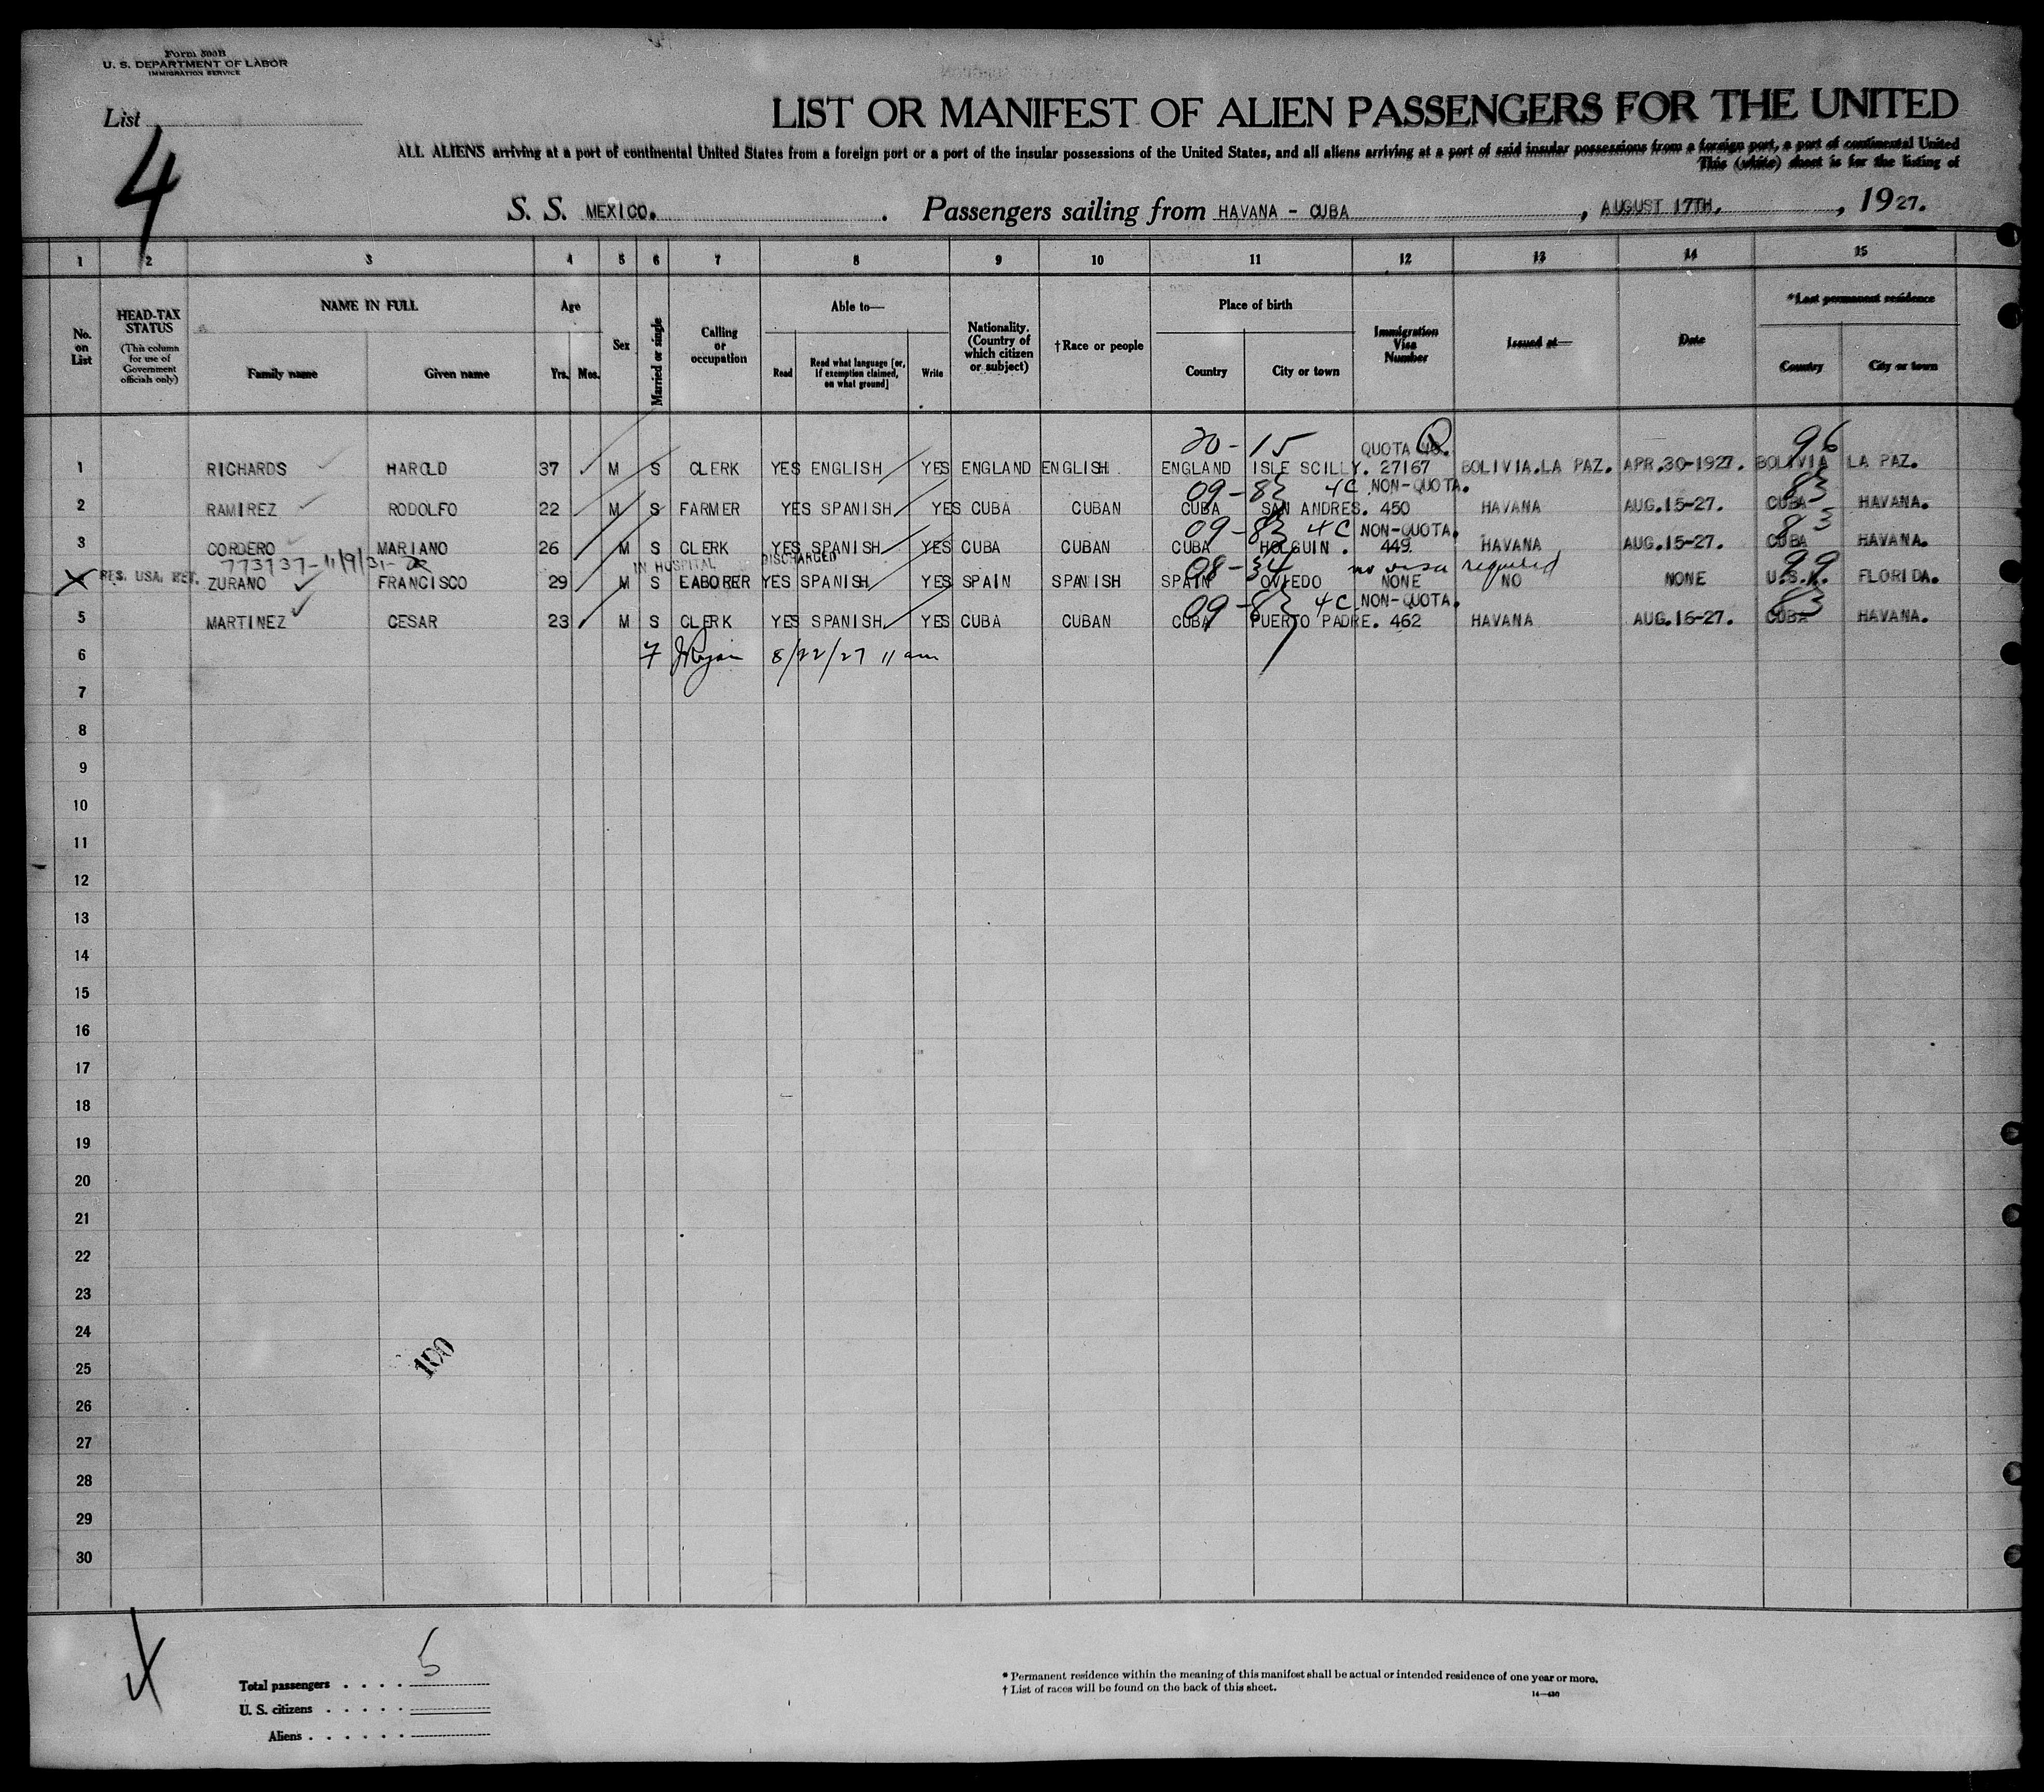 Form 500B
U. S. DEPARTMENT OF LABOR
IMMIGRATION SERVICE
List
4
LIST OR MANIFEST OF ALIEN PASSENGERS FOR THE UNITED
ALL ALIENS arriving at a port of continental United States from a foreign port or a port of the insular possessions of the United States, and all aliens arriving at a port of said insular possessions from a foreign port, a port of continental United
This (white) sheet is for the listing of
S. S. MEXICO. Passengers sailing from HAVANA - CUBA, AUGUST 17TH., 1927.
1 2 3 4 5 6 7 8 9 10 11 12 13 14 15
No. on List
HEAD-TAX STATUS (This column for use of Government officials only)
NAME IN FULL
Family name Given name
Age
Yrs. Mos.
Sex
Married or single
Calling or occupation
Able to—
Read Read what language [or, if exemption claimed, on what ground] Write
Nationality. (Country of which citizen or subject)
†Race or people
Place of birth
Country City or town
Immigration Visa Number
Issued at—
Date
*Last permanent residence
Country City or town
20-15 QUOTA NO. 96
1 RICHARDS HAROLD 37 M S CLERK YES ENGLISH YES ENGLAND ENGLISH ENGLAND ISLE SCILLY. 27167 BOLIVIA.LA PAZ. APR.30-1927. BOLIVIA LA PAZ.
09-83 4C NON-QUOTA. 83
2 RAMIREZ RODOLFO 22 M S FARMER YES SPANISH YES CUBA CUBAN CUBA SAN ANDRES. 450 HAVANA AUG.15-27. CUBA HAVANA.
09-83 4C NON-QUOTA. 83
3 CORDERO MARIANO 26 M S CLERK YES SPANISH YES CUBA CUBAN CUBA HOLGUIN. 449. HAVANA AUG.15-27. CUBA HAVANA.
773737-11/9/31- IN HOSPITAL DISCHARGED 08-34 no visa required 99
RES. USA. RET. ZURANO FRANCISCO 29 M S LABORER YES SPANISH YES SPAIN SPANISH SPAIN OVIEDO NONE NO NONE U.S.A. FLORIDA.
09-83 4C NON-QUOTA. 83
5 MARTINEZ CESAR 23 M S CLERK YES SPANISH YES CUBA CUBAN CUBA PUERTO PADRE. 462 HAVANA AUG.16-27. CUBA HAVANA.
6 8/22/27 11 am
7
8
9
10
11
12
13
14
15
16
17
18
19
20
21
22
23
24
25
26
27
28
29
30
100
Total passengers . . . . 5
U. S. citizens . . . . .
Aliens . . . . . .
* Permanent residence within the meaning of this manifest shall be actual or intended residence of one year or more.
† List of races will be found on the back of this sheet.
14—430